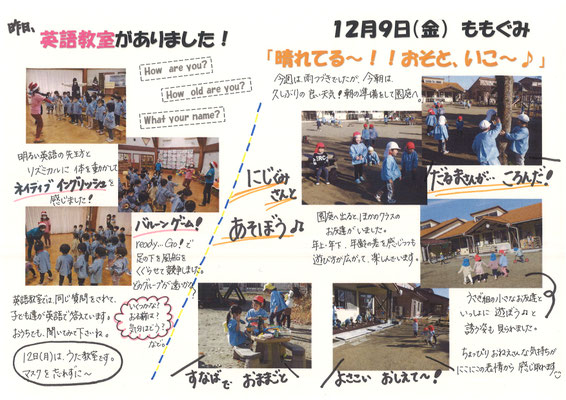 昨日、
英語教室がありました!
How are you?
How old are you?
What your name?
明るい英語の先生方と
リズミカルに体を動かして
ネイティブイングリッシュを
感じました!
バルーンゲーム!
ready...Go!で
足の下を風船を
くぐらせて競争しました。
どのグループが速いかな?
英語教室では、同じ質問をされて、
子ども達が英語で答えています。
おうちでも、聞いてみて下さいね。
いくつかな?
お名前は?
気分はどう?
など。
12日(月)は、うた教室です。
マスクを忘れずに〜
12月9日(金) ももぐみ
「晴れてる〜!!おそと、いこ〜♪」
今週は雨つづきでしたが、今朝は
久しぶりの良い天気!朝の準備をして園庭へ。
だるまさんが… ころんだ!
にじぐみ
さんと
あそぼう♫
園庭へ出ると、ほかのクラスの
お友達がいました。
年上・年下、年齢の差を感じつつも
遊び方が広がって、楽しんでいます。
うさぎ組の小さなお友達と
いっしょに遊ぼう♫と
誘う姿も見られました。
ちょっぴりおねえさんな気持ちが
にこにこの表情から感じ取れます
すなばで おままごと
よさこい おしえて〜!